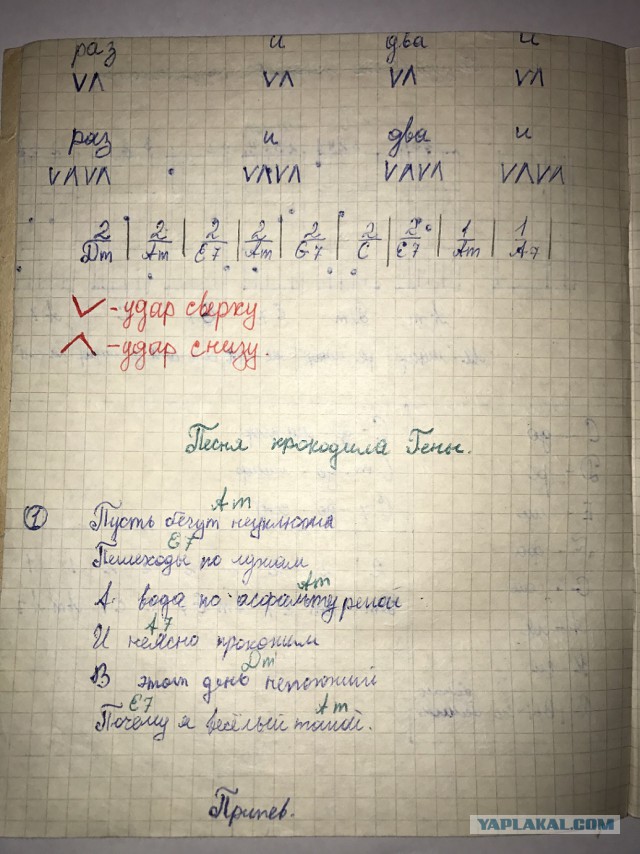 раз и два и
VΛ VΛ VΛ VΛ
раз и два и
VΛVΛ VΛVΛ VΛVΛ VΛVΛ
2/Dm | 2/Am | 2/E7 | 2/Am | 2/G7 | 2/C | 2/E7 | 1/Am | 1/A7 |
V - удар сверху
Λ - удар снизу.
Песня крокодила Гены.
Am
① Пусть бегут неуклюже
E7
Пешеходы по лужам
Am
А вода по асфальту рекой
A7
И неясно прохожим
Dm
В этот день непогожий
E7 Am
Почему я весёлый такой.
Припев.
YAPLAKAL.COM